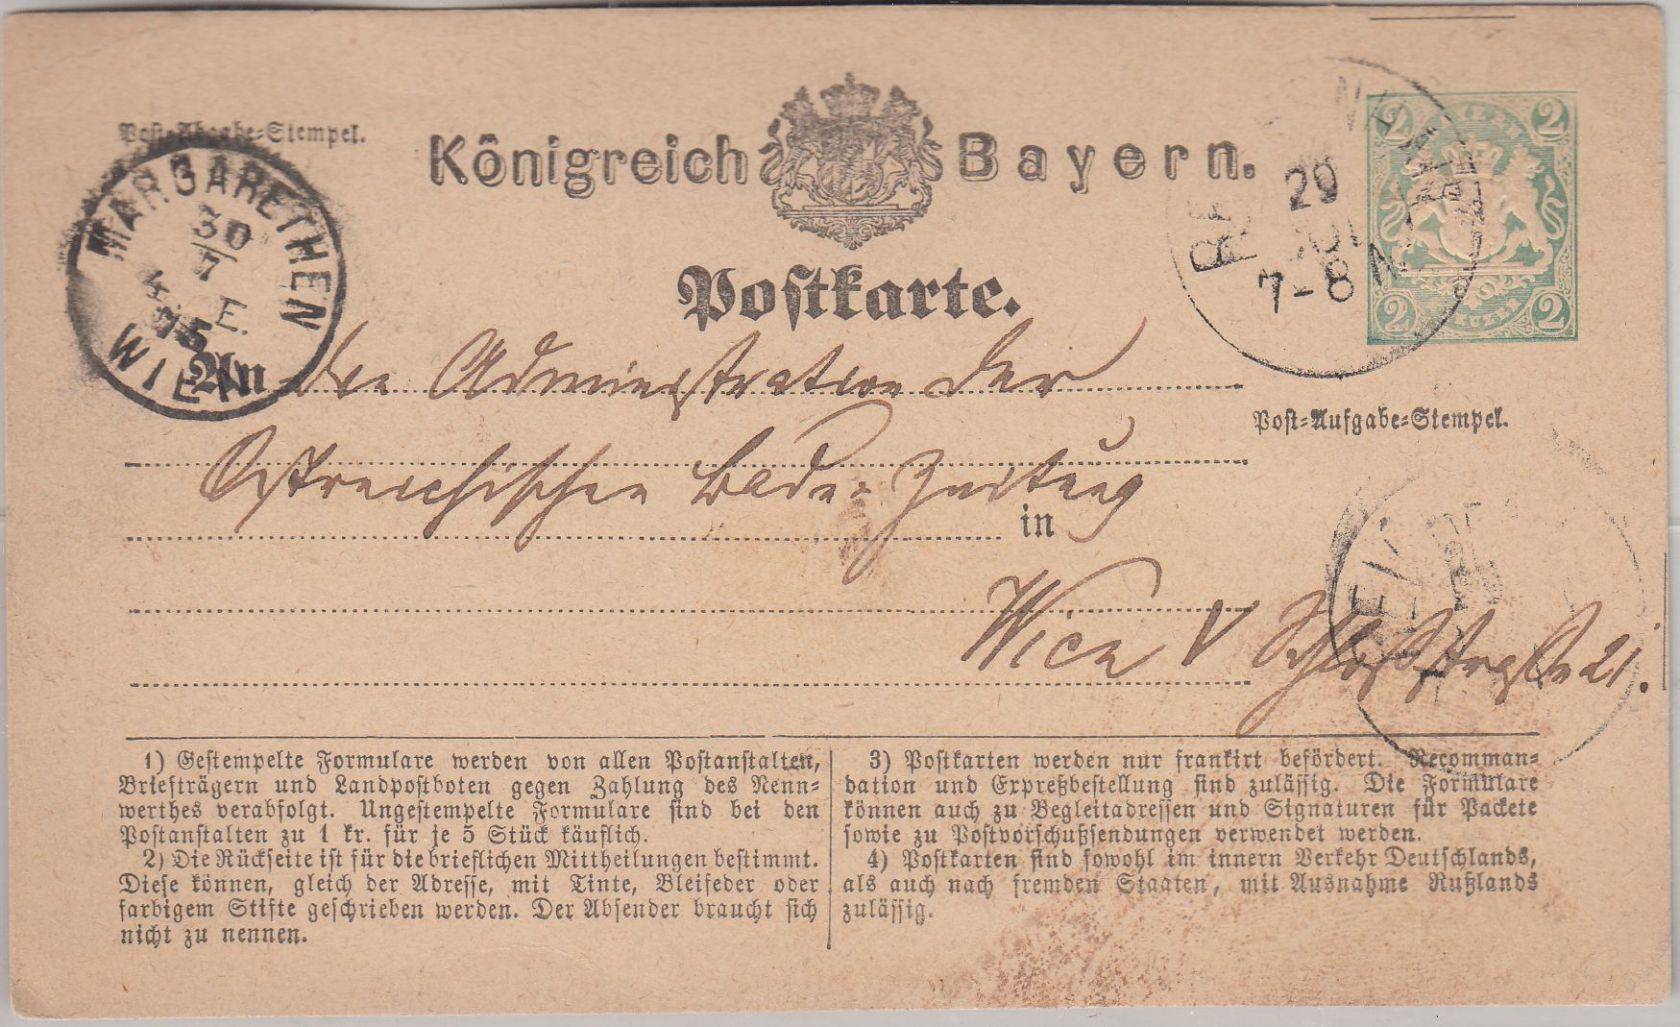 Post-Abgabe-Stempel.
Königreich Bayern.
Postkarte.
MARGARETHEN
30
7
75
E.
WIEN
29
7-8
2 2
2 2
An die Administration der
Post-Aufgabe-Stempel.
Östreichischen Bade-Zeitung
in
Wien V Schloßstraße 21.
1) Gestempelte Formulare werden von allen Postanstalten,
Briefträgern und Landpostboten gegen Zahlung des Nenn-
werthes verabfolgt. Ungestempelte Formulare sind bei den
Postanstalten zu 1 kr. für je 5 Stück käuflich.
2) Die Rückseite ist für die brieflichen Mittheilungen bestimmt.
Diese können, gleich der Adresse, mit Tinte, Bleifeder oder
farbigem Stifte geschrieben werden. Der Absender braucht sich
nicht zu nennen.
3) Postkarten werden nur frankirt befördert. Recomman-
dation und Expreßbestellung sind zulässig. Die Formulare
können auch zu Begleitadressen und Signaturen für Packete
sowie zu Postvorschußsendungen verwendet werden.
4) Postkarten sind sowohl im innern Verkehr Deutschlands,
als auch nach fremden Staaten, mit Ausnahme Rußlands
zulässig.